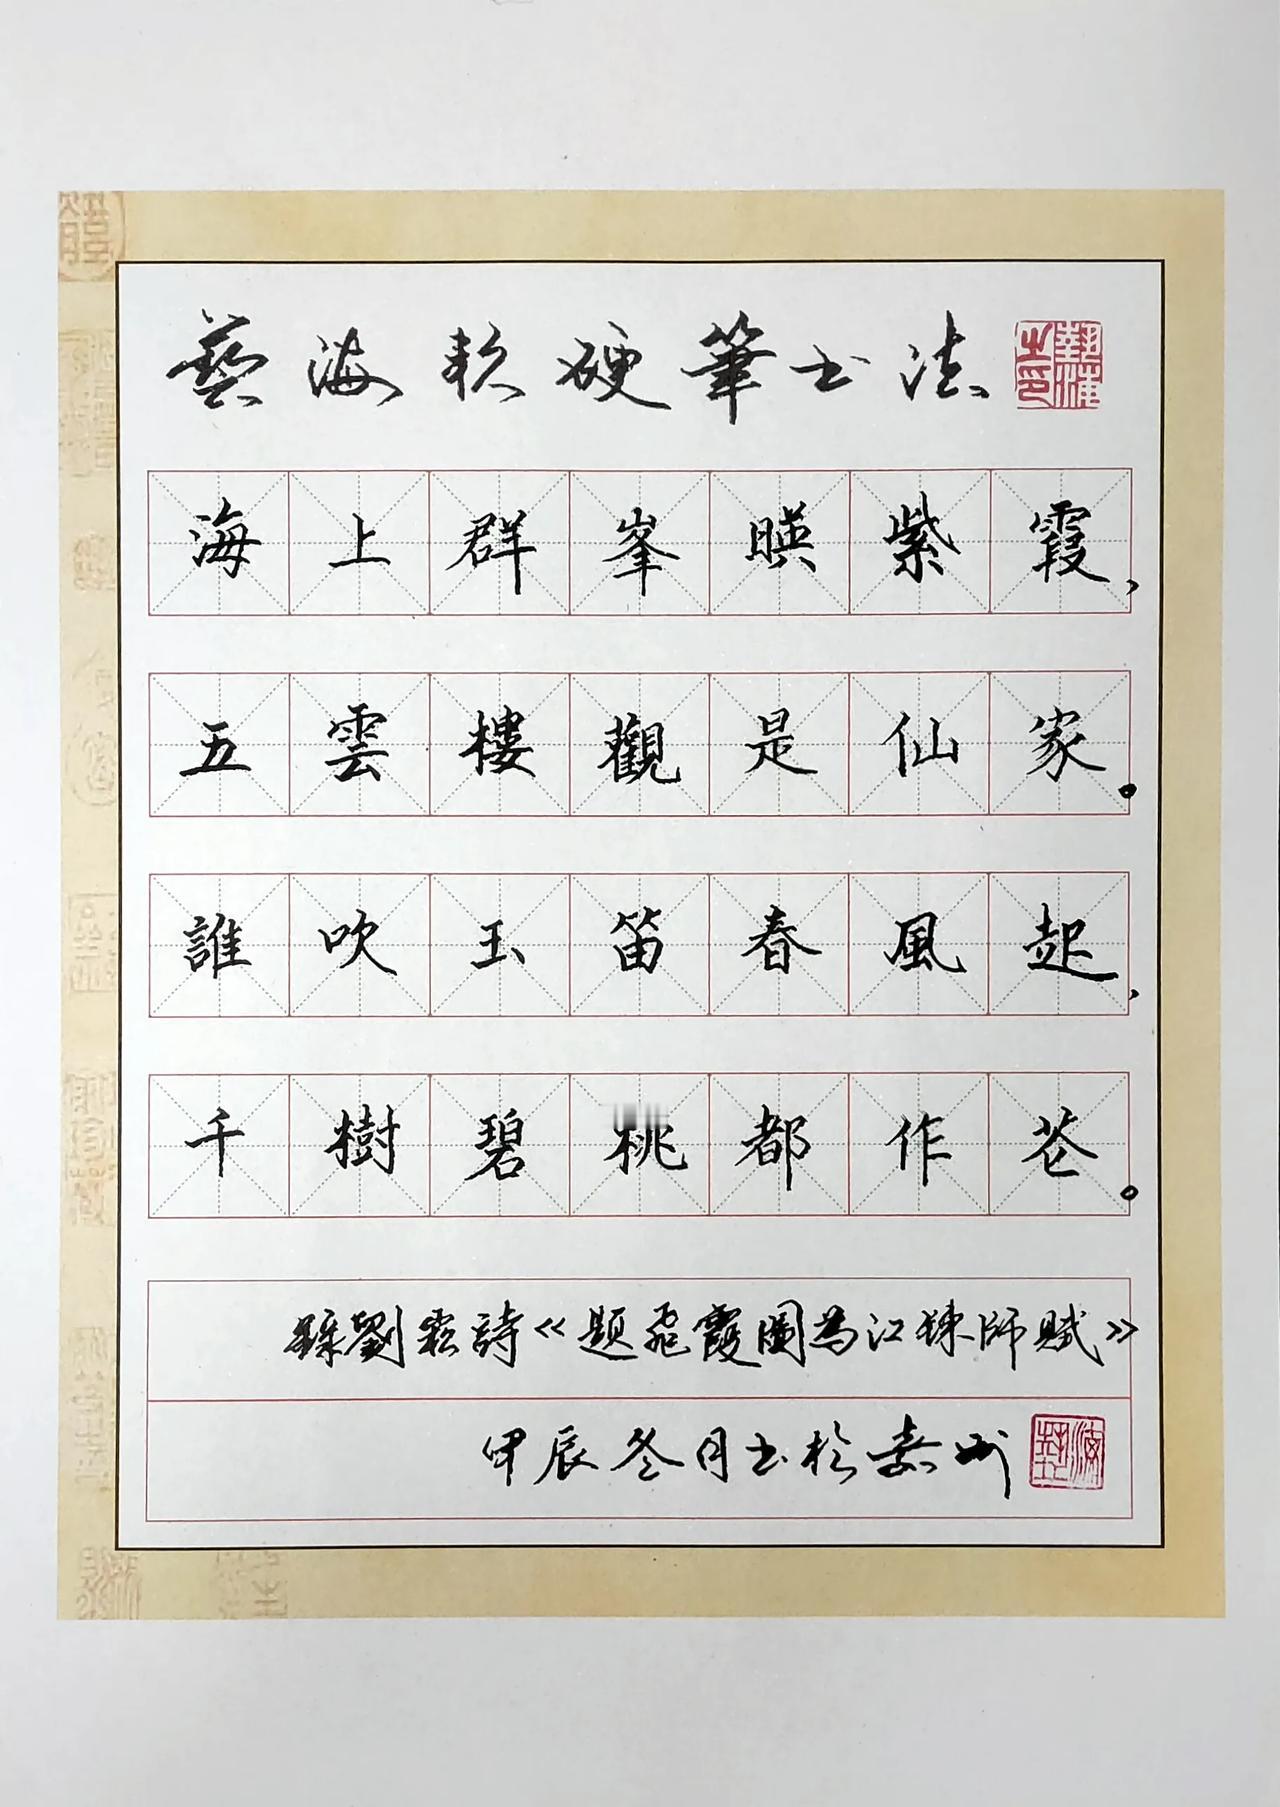 藝海軟硬筆书法
海上群峯暎紫霞，
五雲樓觀是仙家。
誰吹玉笛春風起，
千樹碧桃都作花。
録劉崧詩《題飛霞圖為江鍊師賦》
甲辰冬月书於嘉州